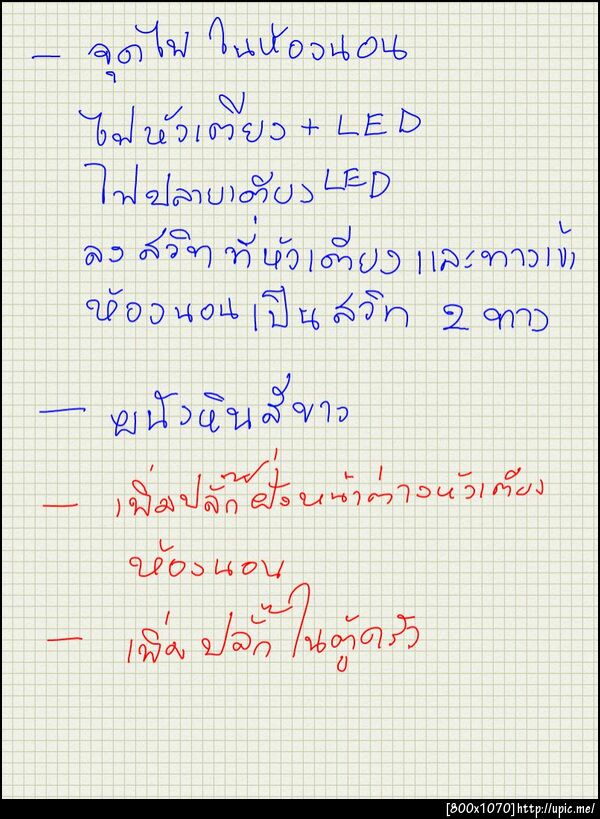 - จุดไฟ ในห้องนอน
ไฟหัวเตียง + LED
ไฟปลายเตียง LED
ลง สวิท ที่หัวเตียง และทางเข้า
ห้องนอนเป็นสวิท 2 ทาง
- ผนังหินสีขาว
- เพิ่มปลั๊กฝั่งหน้าต่างหัวเตียง
ห้องนอน
- เพิ่ม ปลั๊ก ในตู้ครัว
[800x1070]http://upic.me/